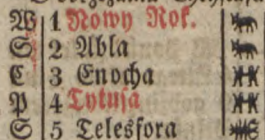 W 1 Nowy Rok.
S 2 Abla
C 3 Enocha
P 4 Tytusa
S 5 Telesfora